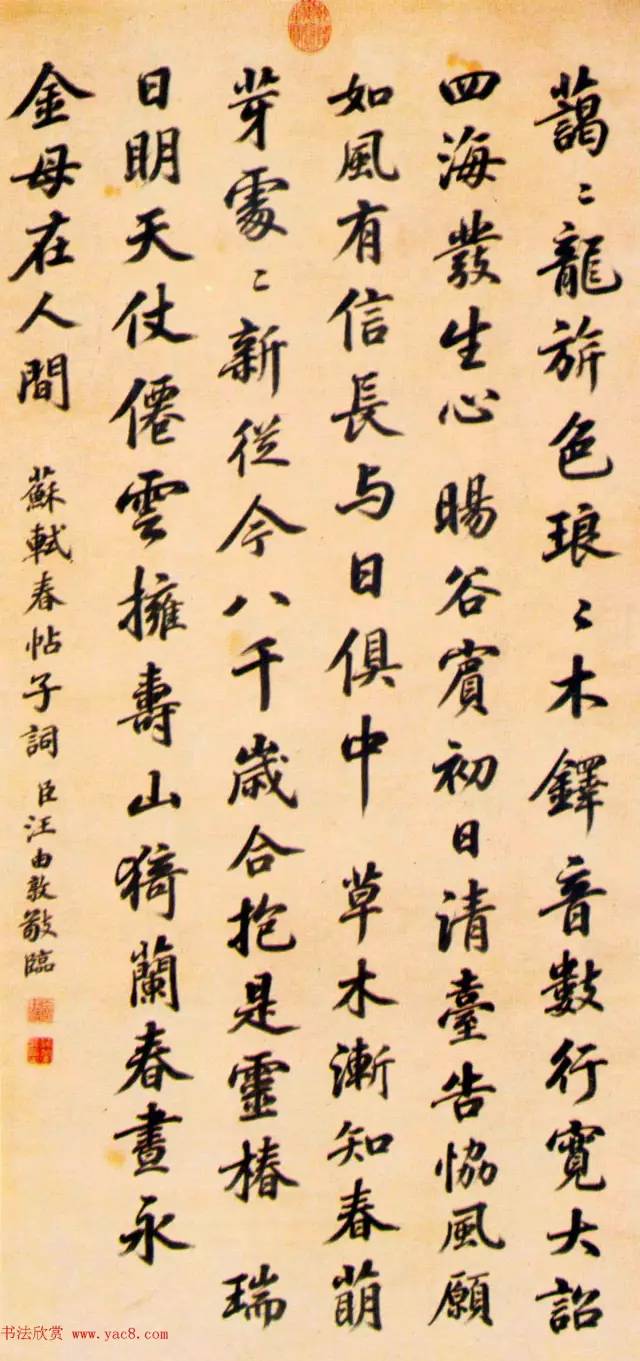 藹〻龍旂色琅〻木鐸音數行寛大詔
四海發生心 暘谷賓初日清臺告協風願
如風有信長与日俱中 草木漸知春萌
芽處〻新從今八千歲合抱是靈椿 瑞
日明天仗僊雲擁壽山猗蘭春晝永
金母在人間
蘇軾春帖子詞 臣汪由敦敬臨
书法欣赏 www.yac8.com